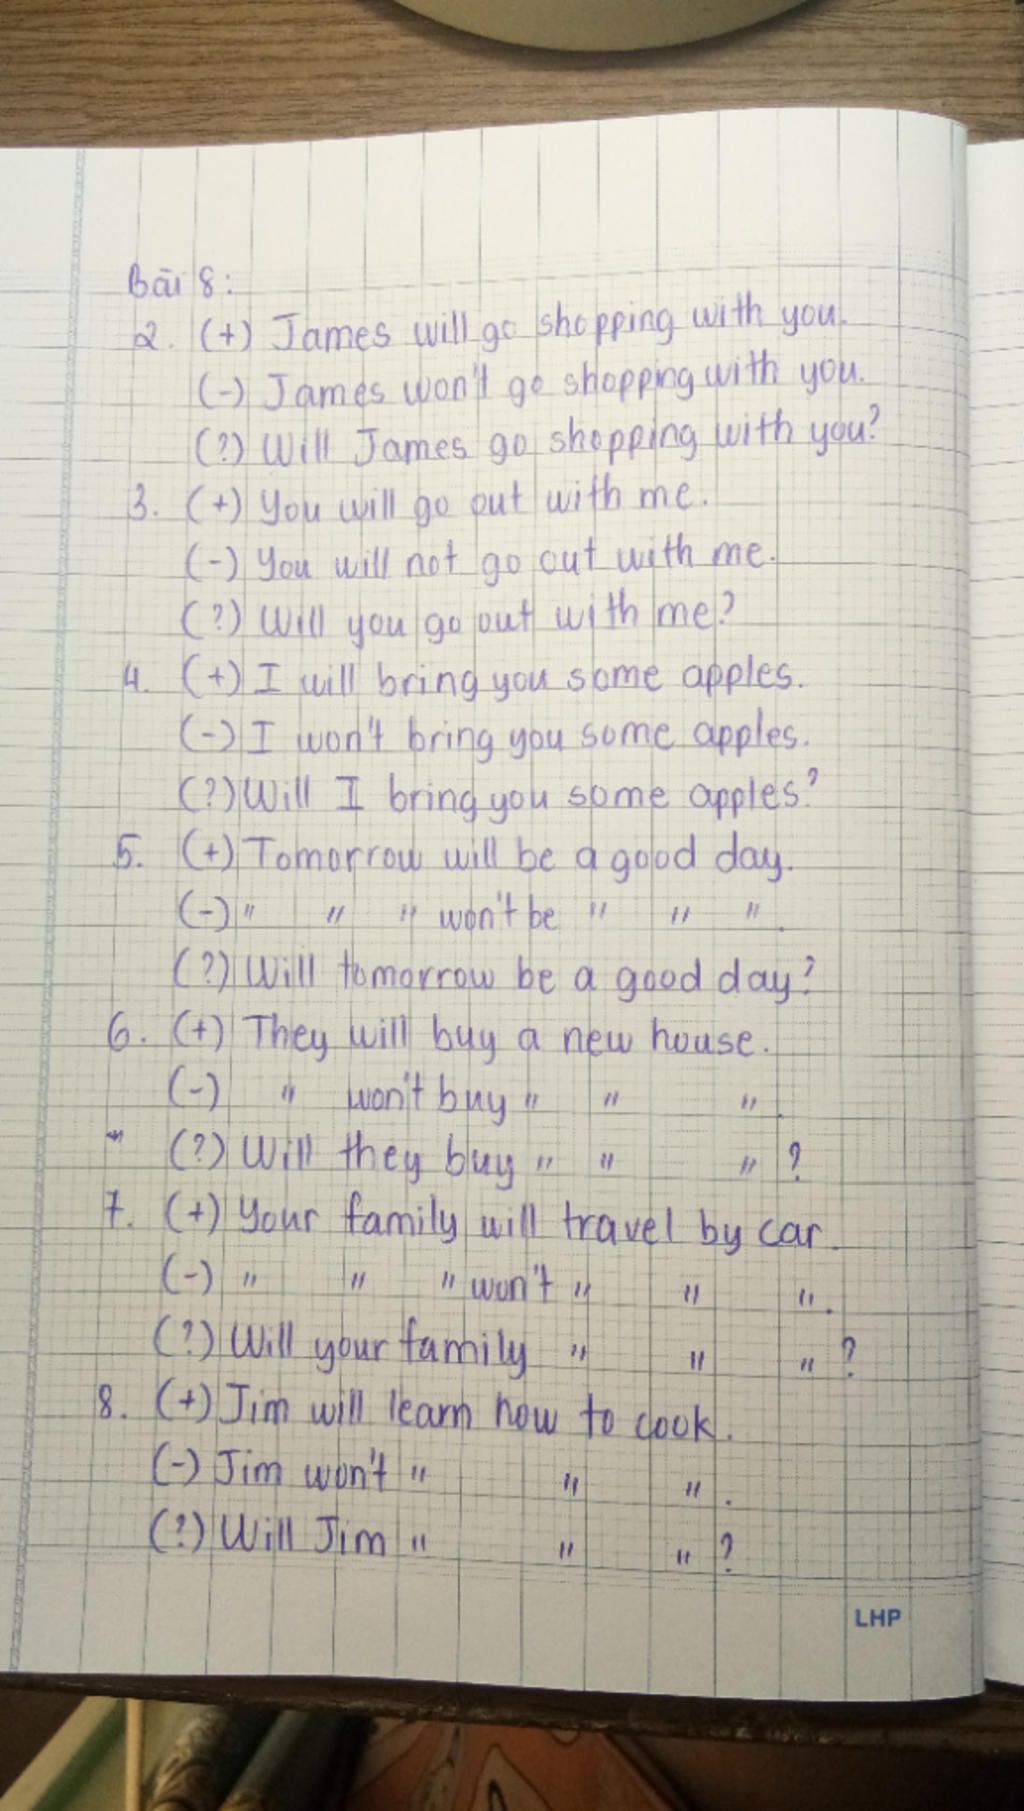 Bài 8:
2. (+) James will go shopping with you.
(-) James won't go shoppng with you.
(?) Will James go shopping with you?
3. (+) You will go out with me.
(-) You will not go out with me.
(?) Will you go out with me?
4. (+) I will bring you some apples.
(-) I won't bring you some apples.
(?) Will I bring you some apples?
5. (+) Tomorrow will be a good day.
(-) " " " won't be " " ".
(?) Will tomorrow be a good day?
6. (+) They will buy a new house.
(-) " won't buy " " ".
(?) Will they buy " " " ?
7. (+) Your family will travel by car.
(-) " " " won't " " ".
(?) Will your family " " " ?
8. (+) Jim will learn how to cook.
(-) Jim won't " " " .
(?) Will Jim " " " ?
LHP